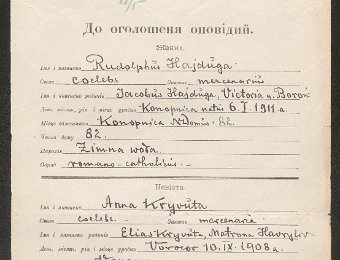 До оголошеня оповідий.
Жених.
Імя і назвиско Rudolphus Hajduga.
Стан coelebs Занятє mercenarius
Імя і назвиско родичів Jacobus Hajduga, Victoria n. Boroń
День, місяць, рік і місце уродженя Konopnica natus 6. I. 1911 a.
Місце Konopnica N Domus: 82.
Число дому 82.
Парохія Zimna woda.
Обряд romano-catholicus.
Невіста.
Імя і назвиско Anna Kryvuta
Стан coelebs. Занятє mercenaria
Імя і назвиско родичів Elias Kryvuta, Matrona Havryliv
День, місяць, рік і місце уродж. 10. IX. 1908 a.